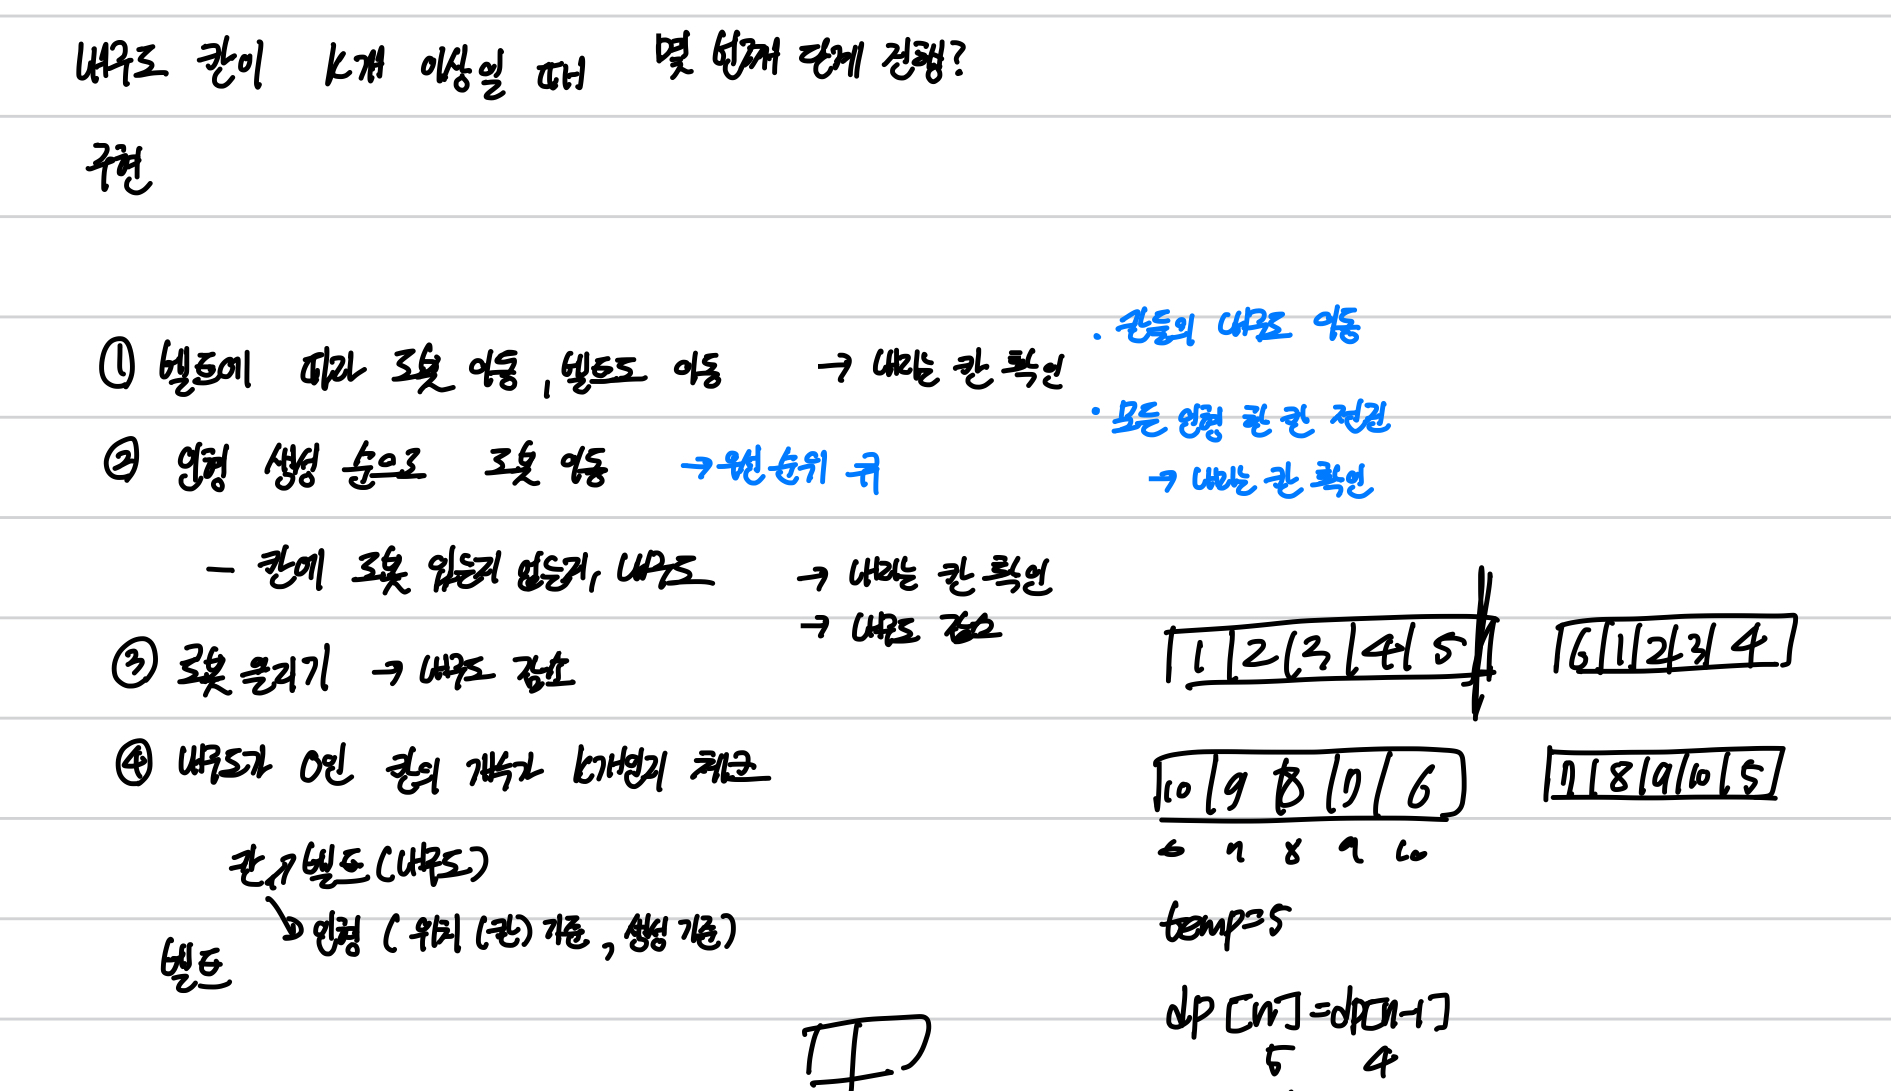 내구도 칸이 K개 이상일 때 몇 번째 단계 진행?
구현
① 벨트에 따라 로봇 이동, 벨트도 이동 → 내리는 칸 확인
· 칸들의 내구도 이동
· 모든 인형 한 칸 전진
→ 내리는 칸 확인
② 인형 생성 순으로 로봇 이동 → 우선순위 큐
- 칸에 로봇 있는지 없는지, 내구도 → 내리는 칸 확인
→ 내구도 감소
③ 로봇 올리기 → 내구도 감소
④ 내구도가 0인 칸의 개수가 K개인지 체크
칸 → 벨트 (내구도)
→ 인형 (위치 (칸) 기준, 생성 기준)
벨트
1 2 3 4 5
6 1 2 3 4
10 9 8 7 6
7 8 9 10 5
6 7 8 9 10
temp=5
dp[n]=dp[n-1]
5 4